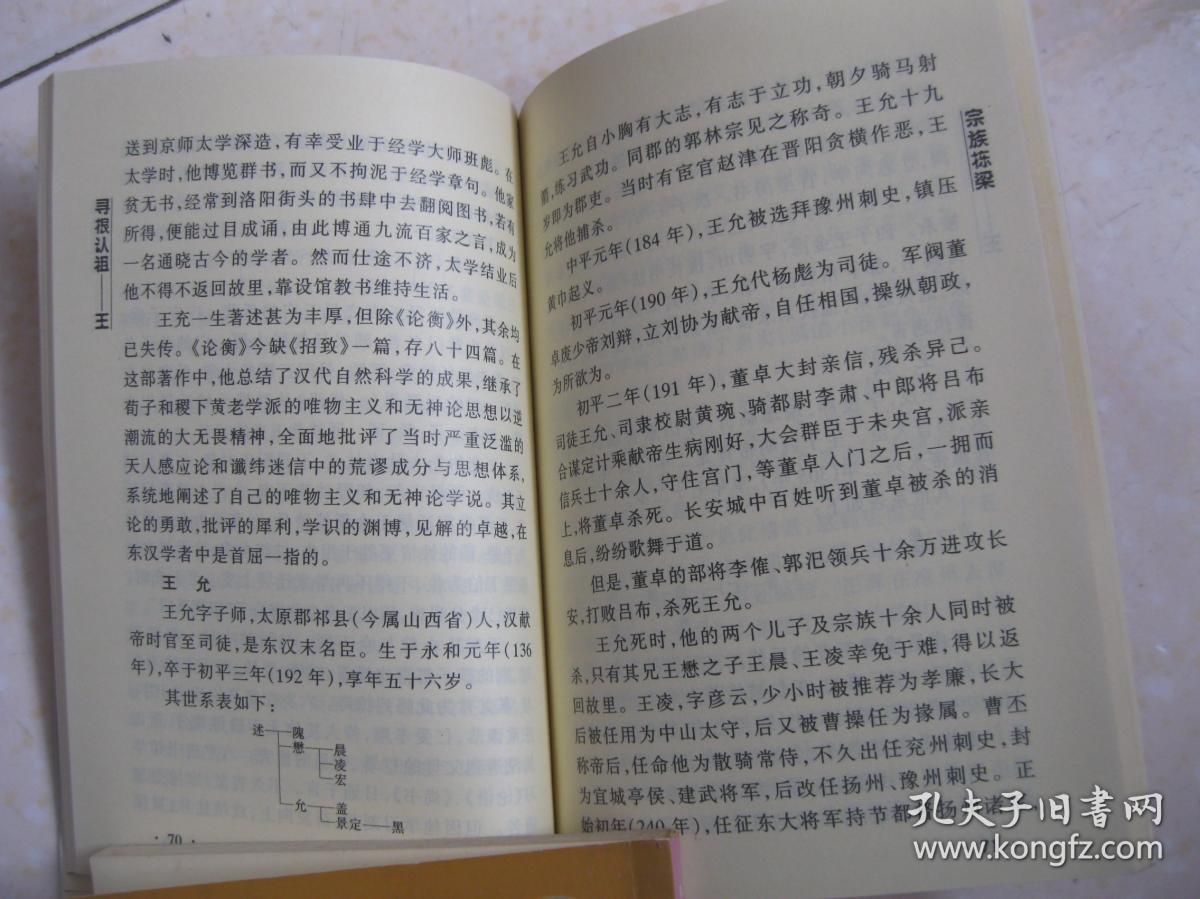 寻根认祖——王
送到京师太学深造,有幸受业于经学大师班彪。在
太学时,他博览群书,而又不拘泥于经学章句。他家
贫无书,经常到洛阳街头的书肆中去翻阅图书,若有
所得,便能过目成诵,由此博通九流百家之言,成为
一名通晓古今的学者。然而仕途不济,太学结业后
他不得不返回故里,靠设馆教书维持生活。
王充一生著述甚为丰厚,但除《论衡》外,其余均
已失传。《论衡》今缺《招致》一篇,存八十四篇。在
这部著作中,他总结了汉代自然科学的成果,继承了
荀子和稷下黄老学派的唯物主义和无神论思想以逆
潮流的大无畏精神,全面地批评了当时严重泛滥的
天人感应论和谶纬迷信中的荒谬成分与思想体系,
系统地阐述了自己的唯物主义和无神论学说。其立
论的勇敢,批评的犀利,学识的渊博,见解的卓越,在
东汉学者中是首屈一指的。
王 允
王允字子师,太原郡祁县(今属山西省)人,汉献
帝时官至司徒,是东汉末名臣。生于永和元年(136
年),卒于初平三年(192年),享年五十六岁。
其世系表如下:
述 隗
懋 晨
凌
宏
允 盖
景定 黑
·70·
宗族拣梁
王允自小胸有大志,有志于立功,朝夕骑马射
箭,练习武功。同郡的郭林宗见之称奇。王允十九
岁即为郡吏。当时有宦官赵津在晋阳贪横作恶,王
允将他捕杀。
中平元年(184年),王允被选拜豫州刺史,镇压
黄巾起义。
初平元年(190年),王允代杨彪为司徒。军阀董
卓废少帝刘辩,立刘协为献帝,自任相国,操纵朝政,
为所欲为。
初平二年(191年),董卓大封亲信,残杀异己。
司徒王允、司隶校尉黄琬、骑都尉李肃、中郎将吕布
合谋定计乘献帝生病刚好,大会群臣于未央宫,派亲
信兵士十余人,守住宫门,等董卓人门之后,一拥而
上,将董卓杀死。长安城中百姓听到董卓被杀的消
息后,纷纷歌舞于道。
但是,董卓的部将李傕、郭汜领兵十余万进攻长
安,打败吕布,杀死王允。
王允死时,他的两个儿子及宗族十余人同时被
杀,只有其兄王懋之子王晨、王凌幸免于难,得以返
回故里。王凌,字彦云,少小时被推荐为孝廉,长大
后被任用为中山太守,后又被曹操任为掾属。曹丕
称帝后,任命他为散骑常侍,不久出任兖州刺史,封
为宜城亭侯、建武将军,后改任扬州、豫州刺史。正
始初年(240年),任征东大将军持节都督扬州诸
孔夫子旧书网
www.kongfz.com